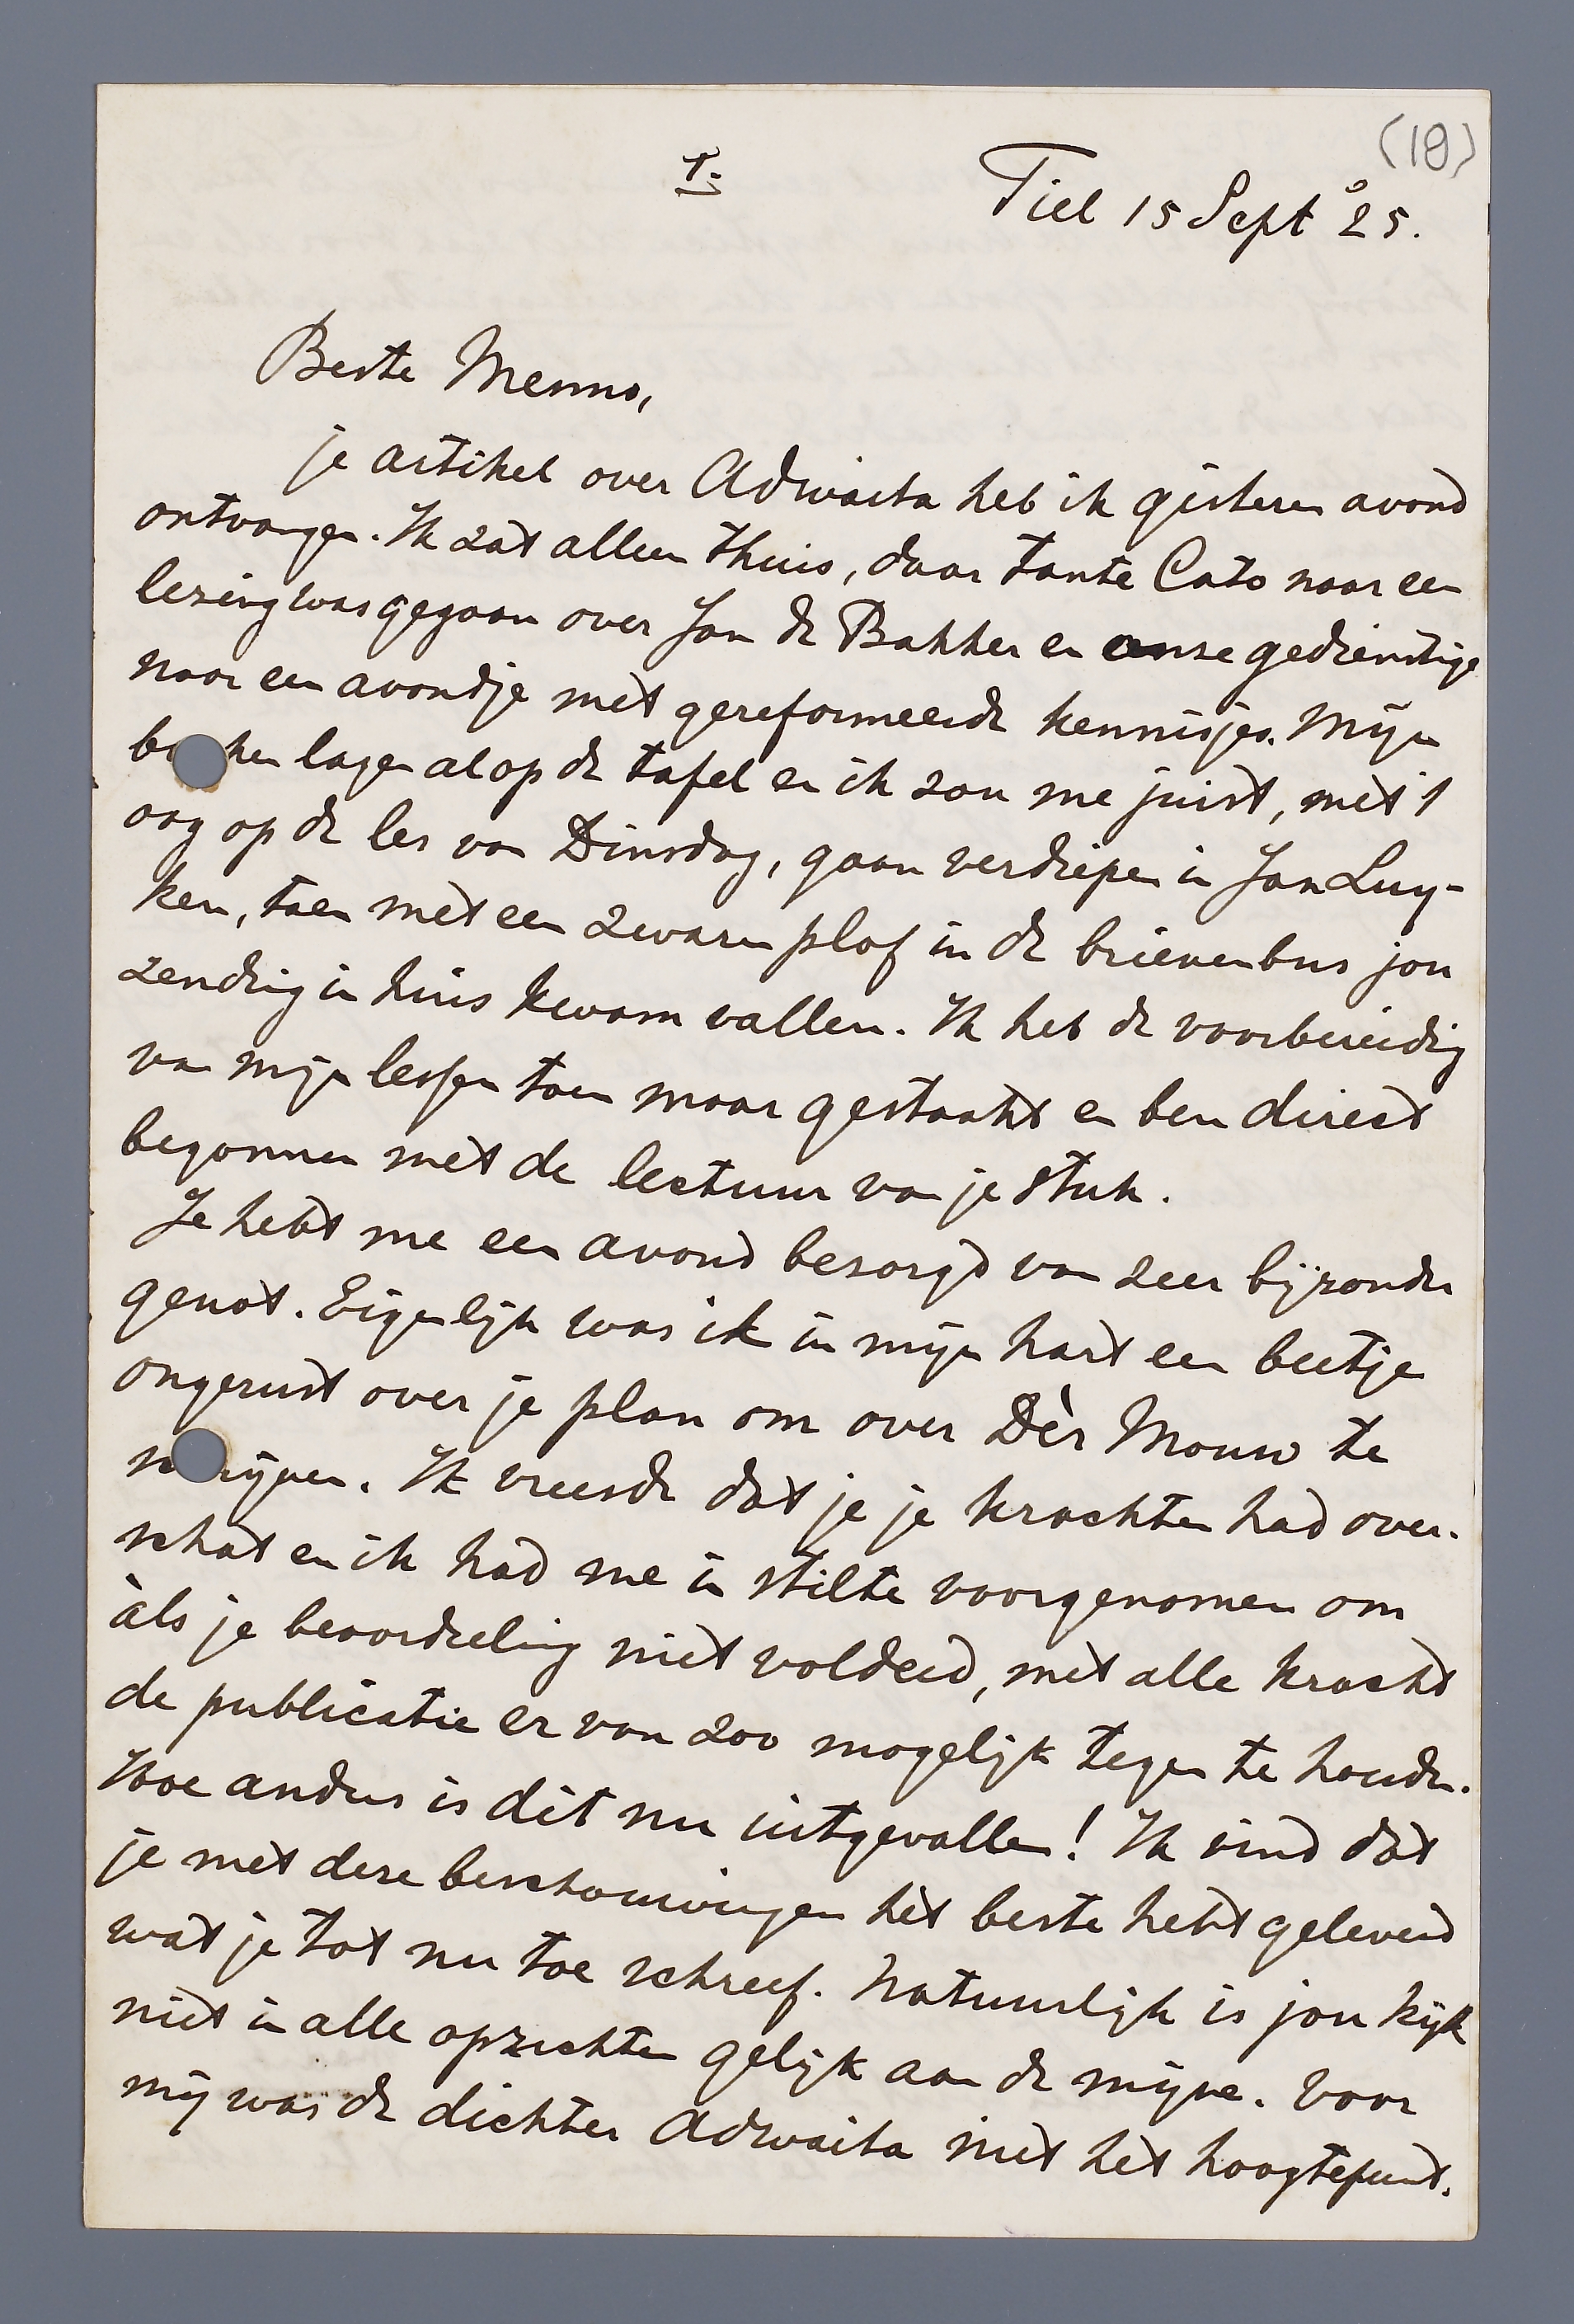 (18)
1.
Tiel 15 Sept '25.
Beste Menno,
je artikel over Adwaita heb ik gisteren avond
ontvangen. Ik zat alleen thuis, daar tante Cato naar een
lezing was gegaan over Jan de Bakker en onze gedienstige
naar een avondje met gereformeerde kennisjes. Mijn
boeken lagen al op de tafel en ik zou me juist, met 't
oog op de les van Dinsdag, gaan verdiepen in Jan Luy-
ken, toen met een zwaren plof in de brievenbus jou
zending in huis kwam vallen. Ik heb de voorbereidig
van mijn lessen toen maar gestaakt en ben direct
begonnen met de lectuur van je stuk.
Je hebt me een avond bezorgd van zeer bijzonder
genot. Eigenlijk was ik in mijn hart een beetje
ongerust over je plan om over Dèr Mouw te
schrijven. Ik vreesde dat je je krachten had over-
schat en ik had me in stilte voorgenomen om
àls je beoordeeling niet voldeed, met alle kracht
de publicatie er van zoo mogelijk tegen te houden.
Hoe anders is dit nu uitgevallen! Ik vind dat
je met deze beschouwingen hèt beste hebt geleverd
wat je tot nu toe schreef. Natuurlijk is jou kijk
niet in alle opzichten gelijk aan de mijne. Voor
mij was de dichter Adwaita niet hèt hoogtepunt.